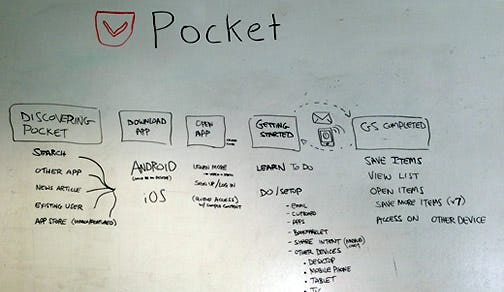 Pocket
DISCOVERING POCKET
SEARCH
OTHER APP
NEWS ARTICLE
EXISTING USER
APP STORE
DOWNLOAD APP
ANDROID
iOS
OPEN APP
LEARN MORE
SIGN UP / LOG IN
(GUIDED ACCESS)
GETTING STARTED
LEARN TO DO
DO/SETUP
- EMAIL
- APPS
- BOOKMARKLET
- SHARE INTENT (MOBILE ONLY)
- OTHER DEVICES
• DESKTOP
• MOBILE PHONE
• TABLET
GS COMPLETED
SAVE ITEMS
VIEW LIST
OPEN ITEMS
SAVE MORE ITEMS (x7)
ACCESS ON OTHER DEVICE